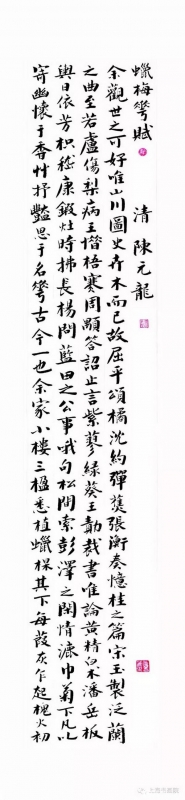 蠟梅花賦 清 陳元龍
余觀世之可好唯山川圖史卉木而已故屈平頌橘沈約彈蕉張衡奏憶桂之篇宋玉製泛蘭
之曲至若盧傷梨病王惜梧寒周顒答詔止言紫蓼綠葵王勣裁書唯論黃精白朮潘岳板
輿日依芳枳嵇康鍛灶時拂長楊問藍田之公事哦句松間索彭澤之閑情漉巾菊下凡以
寄幽懷于香艸抒豔思于名花古今一也余家小樓三楹悉植蠟楳其下每葭灰乍起槐火初